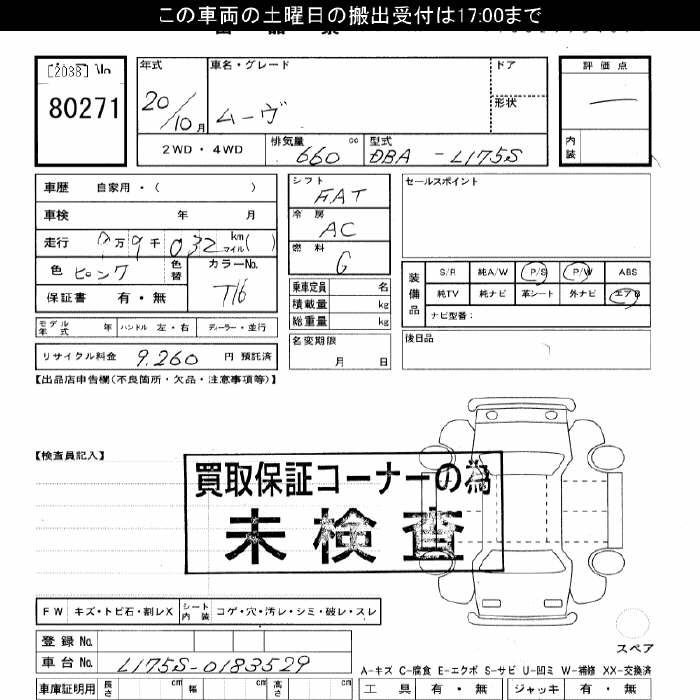 この車両の土曜日の搬出受付は17:00まで
[2038] No
80271
年式
20/10月
車名・グレード
ムーヴ
ドア
形状
評価点
内装
2WD・4WD
排気量 660 cc
型式 DBA - L175S
車歴 自家用・( )
車検 年 月
走行 万 9千 032 km マイル ( )
色 ピンク
色替
カラーNo.
T16
保証書 有・無
モデル年式 年 ハンドル 左・右 ディーラー・並行
リサイクル料金 9,260 円 預託済
シフト
FAT
冷房
AC
燃料
G
乗車定員 名
積載量 kg
総重量 kg
名変期限
月 日
セールスポイント
装備品
S/R 純A/W P/S P/W ABS
純TV 純ナビ 革シート 外ナビ エアB
ナビ型番:
後日品
【出品店申告欄(不良箇所・欠品・注意事項等)】
【検査員記入】
買取保証コーナーの為
未検査
FW キズ・トビ石・割レX シート内装 コゲ・穴・汚レ・シミ・破レ・スレ
スペア
登録No.
車台No. L175S-0183529
A-キズ C-腐食 E-エクボ S-サビ U-凹ミ W-補修 XX-交換済
車庫証明用 長さ cm 幅 cm 高さ cm
工具 有・無 ジャッキ 有・無